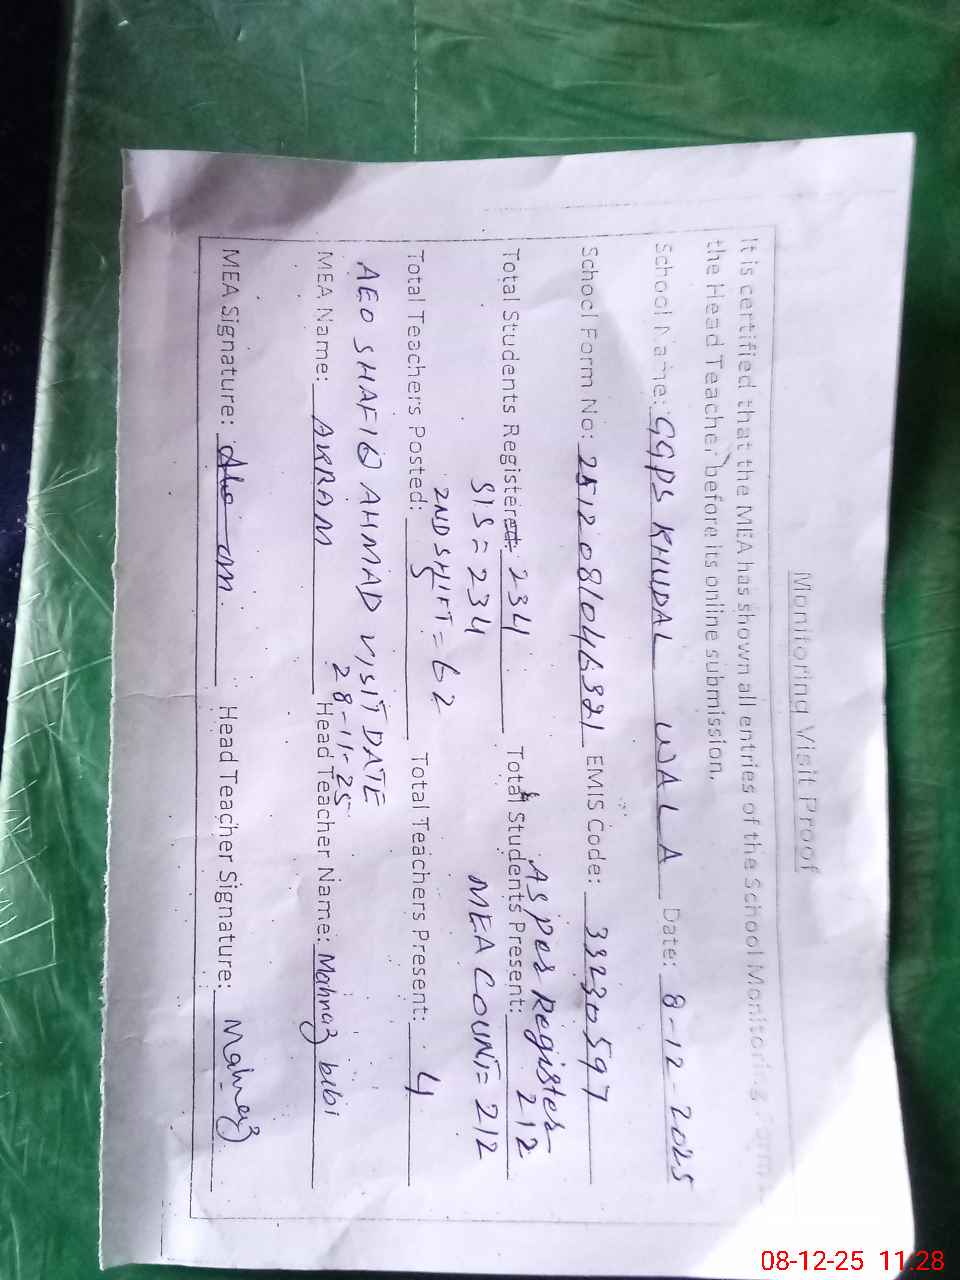 Monitoring Visit Proof
It is certified that the MEA has shown all entries of the School Monitoring Form
the Head Teacher before its online submission.
School Name: GGPS KHUDAL WALA Date: 8-12-2025
School Form No: 2512081046321 EMIS Code: 33230597
As per Register
Total Students Registered: 234 Total Students Present: 212
SIS = 234 MEA COUNT = 212
2ND SHIFT = 62
Total Teachers Posted: 5 Total Teachers Present: 4
AEO SHAFIQ AHMAD VISIT DATE
28-11-25
MEA Name: AKRAM Head Teacher Name: Mahnaz bibi
MEA Signature: Head Teacher Signature: Mahnaz
08-12-25 11:28